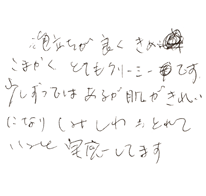 泡立ちが良く きめ
こまかく とてもクリーミーです。
少しずつではあるが肌がきれい
になり しみ しわ も とれて
いつと 実感してます